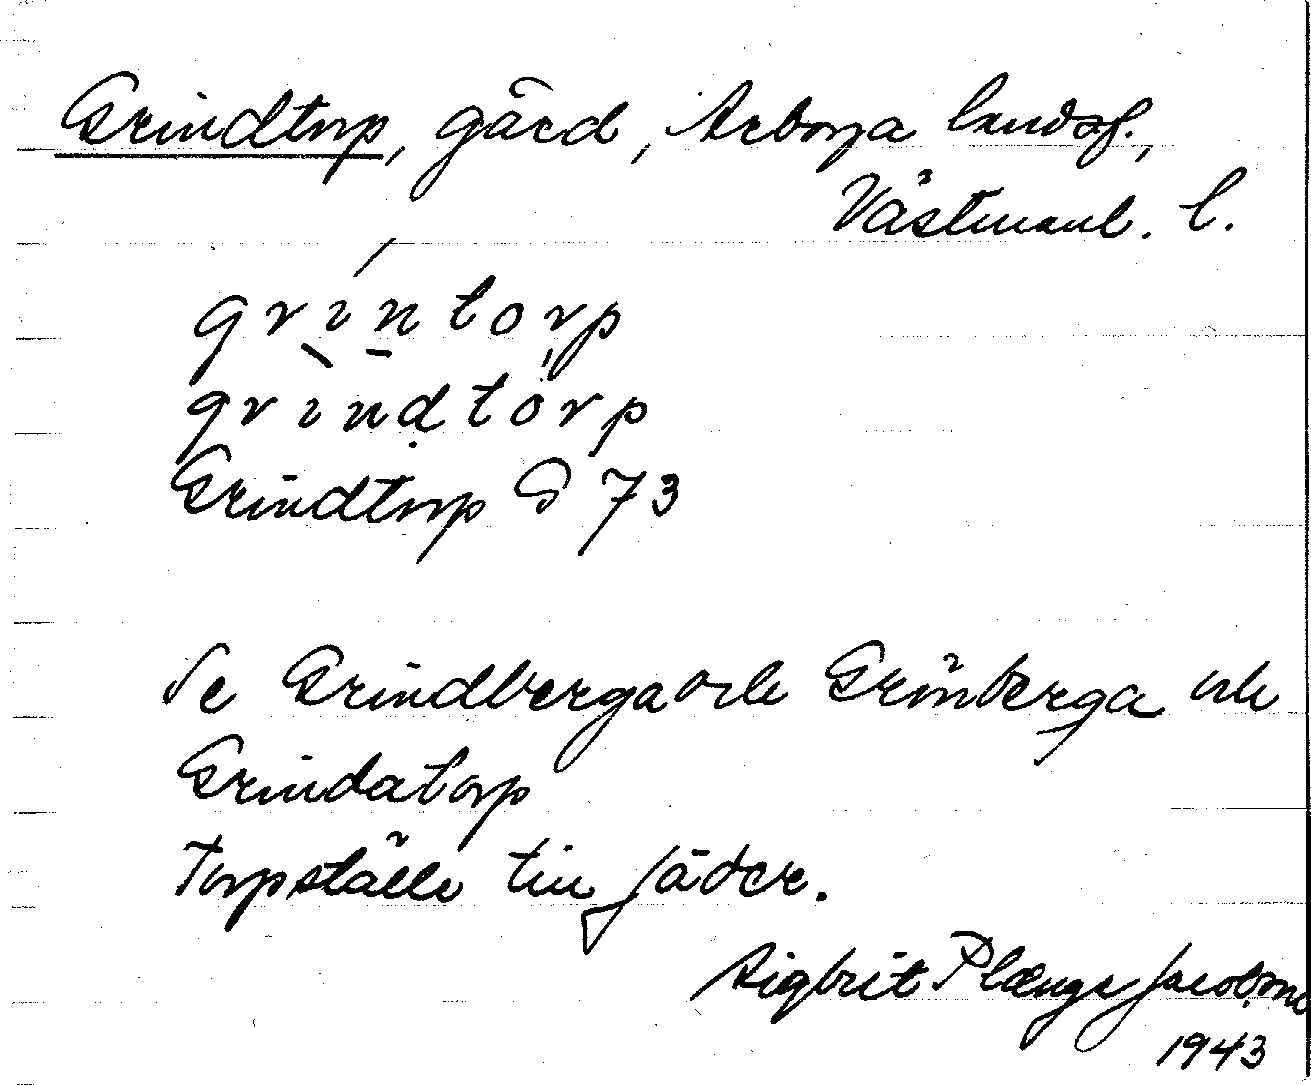 Grindtorp, gård, Arboga landsf.,
Västmanl. l.
grintorp
grindtorp
Grindtorp G 73
Se Grindberga och Grönberga och
Grindatorp
Torpställe till Jäder.
Sigbrit Plænge Jacobson
1943